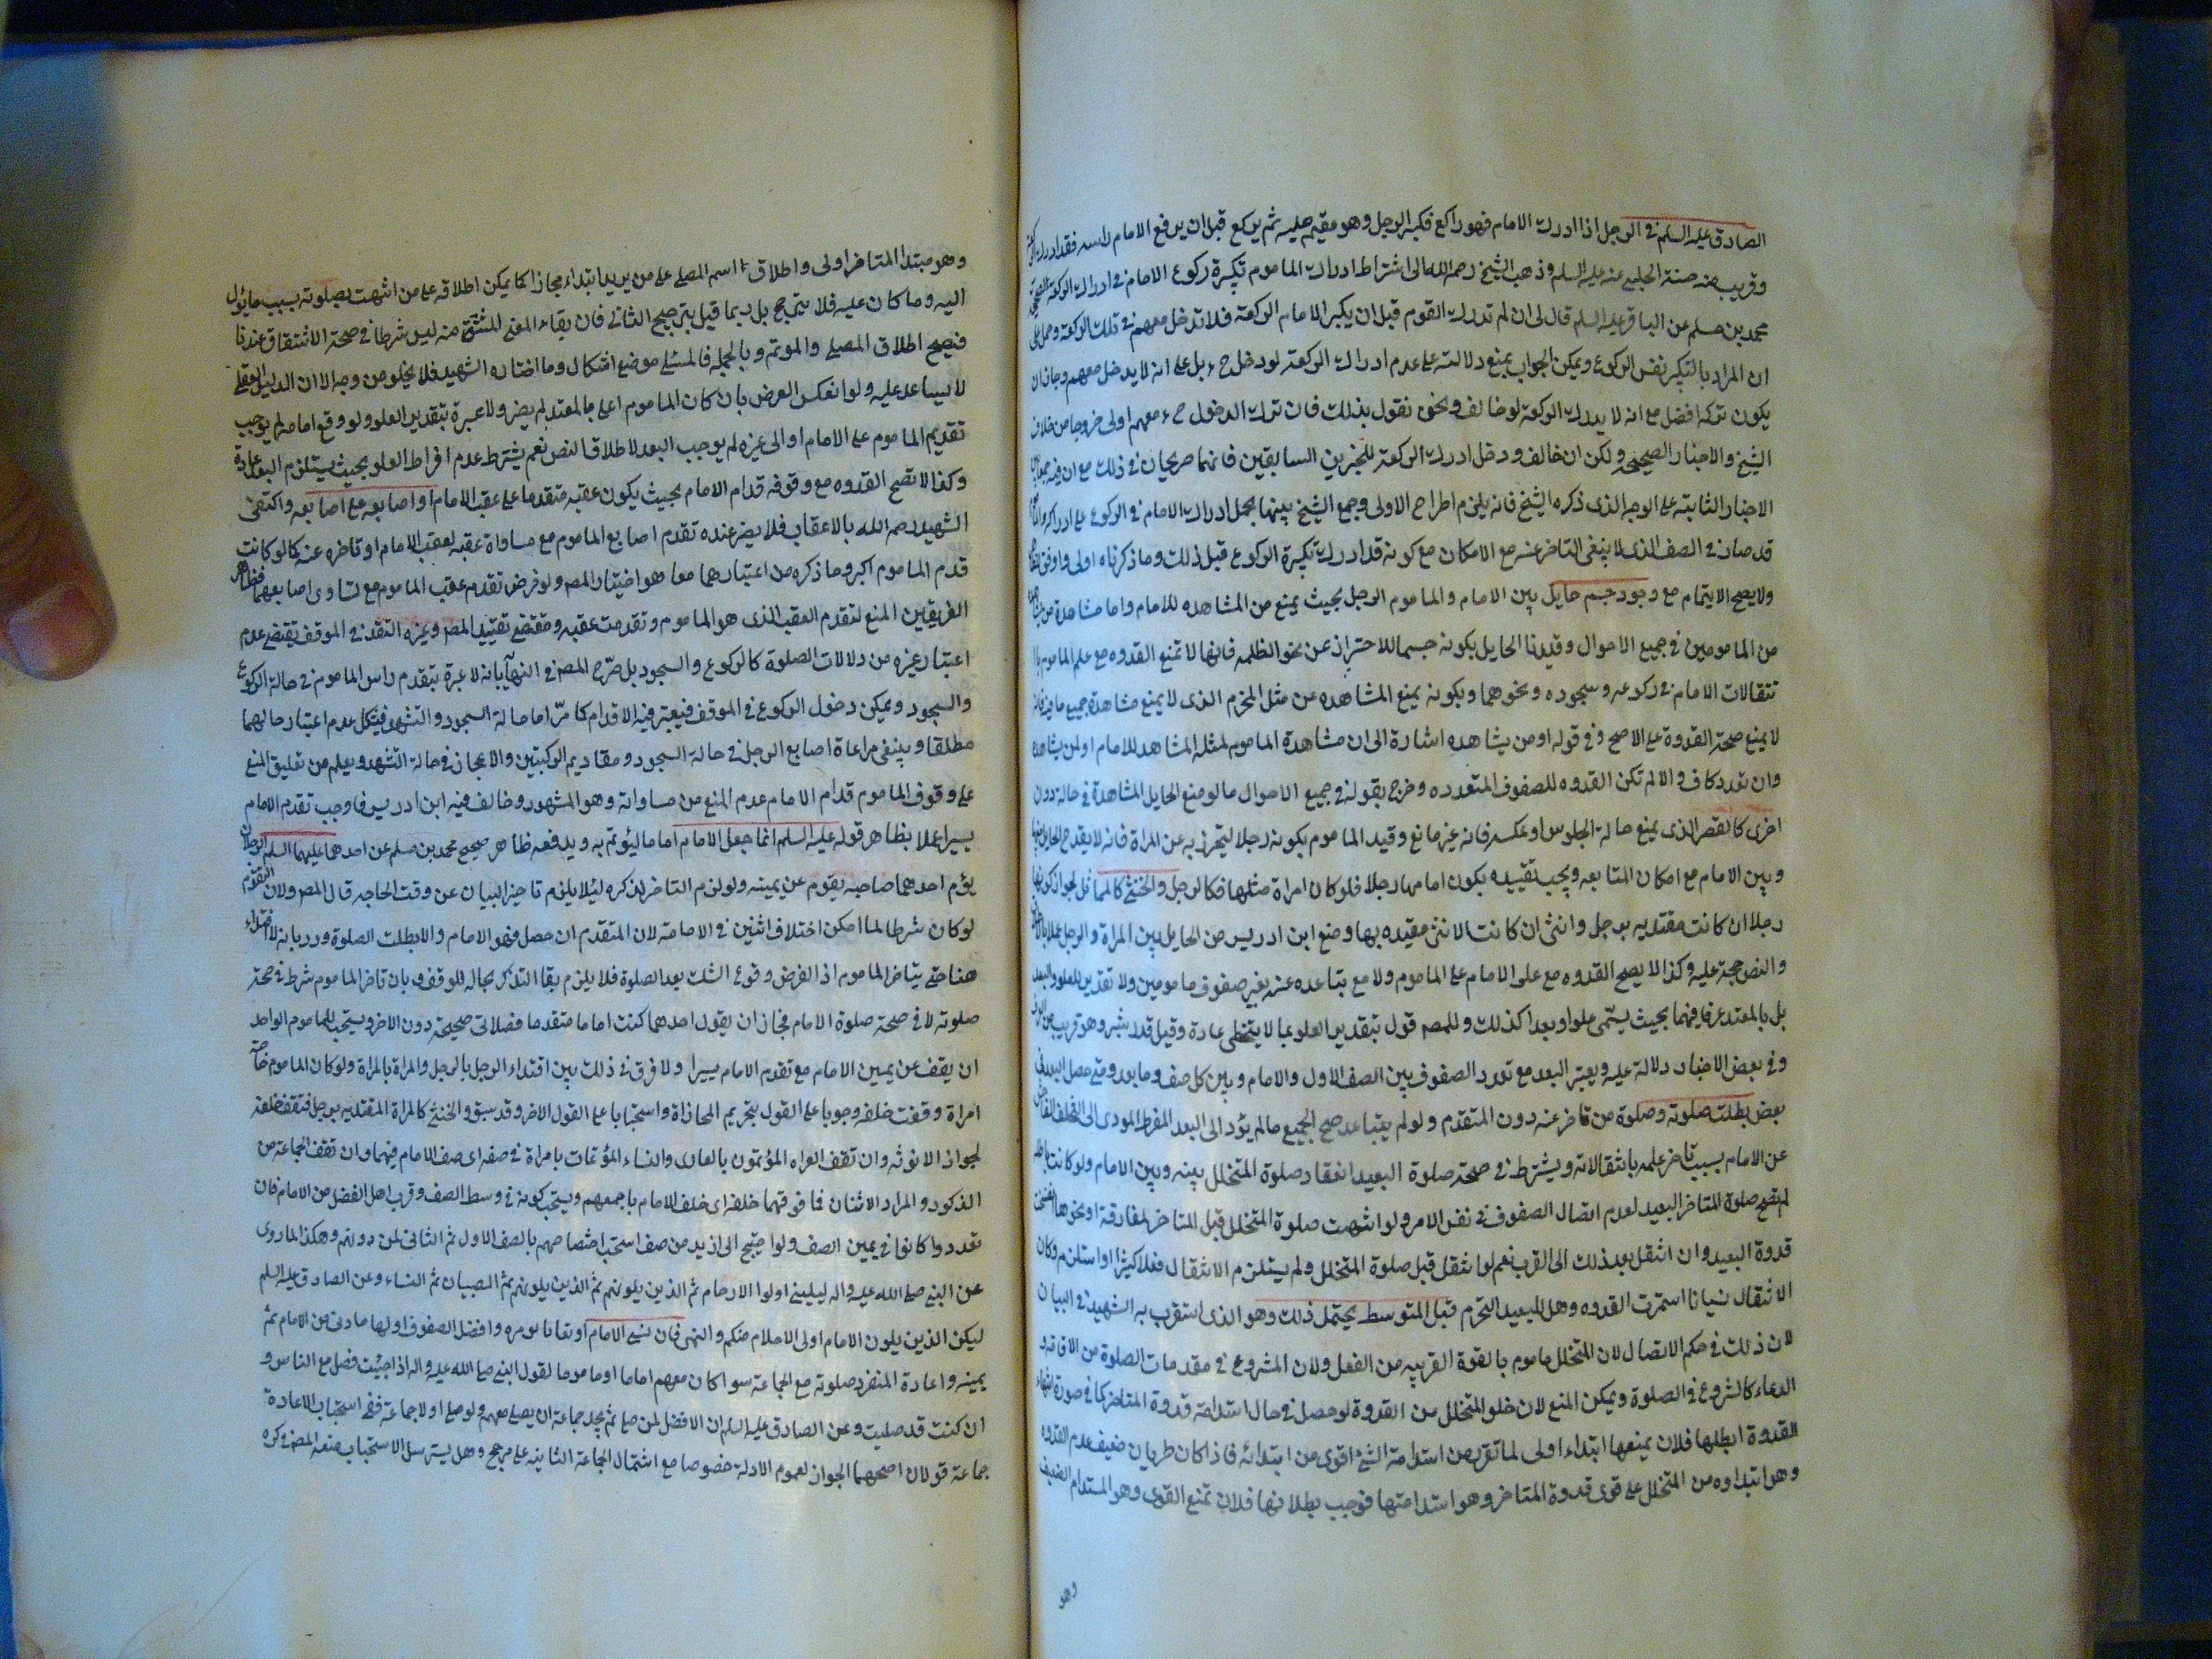 الصادق عليه السلم في الرجل اذا ادرك الامام فهو راكع فكبر الرجل وهو مقيم صلبه ثم يركع قبل ان يرفع الامام راسه فقد ادرك
وقريب منه حسنة الحلبي عنه عليه السلم وذهب الشيخ رحمه الله الى اشتراط ادراك الماموم تكبيرة ركوع الامام في ادراك الركعة
محمد بن مسلم عن الباقر عليه السلم قال لى ان لم تدرك القوم قبل ان يكبر الامام الركعة فلا تدخل معهم في تلك الركعة وحمل على
ان المراد بالتكبير نفس الركوع ويمكن الجواب بمنع دلالته على عدم ادراك الركعة لو دخل ح بل على انه لا يدخل معهم وجاز ان
يكون تركه افضل مع انه لا يدرك الركعة لو خالف ونحن نقول بذلك فان ترك الدخول ح معهم اولى خروجا من خلاف
الشيخ والاخبار الصحيحة ولكن ان خالف ودخل ادرك الركعة للخبرين السابقين فانهما صريحان في ذلك مع ان فيه جمعا بين
الاخبار الثابتة على الوجه الذى ذكره الشيخ فانه يلزم اطراح الاولى وجمع الشيخ بينهما بحمل ادراك الامام في الركوع على ادراكه
قد صار في الصف الذى لا ينبغى التاخر عنه مع الامكان مع كونه قد ادرك تكبيرة الركوع قبل ذلك وما ذكرناه اولى واوفق
ولا يصح الايتمام مع وجود جسم حايل بين الامام والماموم الرجل بحيث يمنع من المشاهده للامام واما مشاهدة من
من المامومين في جميع الاحوال وقيدنا الحايل بكونه جسما للاحتراز عن نحو الظلمه فانها لا تمنع القدوه مع علم الماموم با
نتقالات الامام في ركوعه وسجوده ونحوهما وبكونه يمنع المشاهده عن مثل المخرم الذى لا يمنع مشاهدة جميع ما فيه فانه
لا يمنع صحة القدوة على الاصح وفي قوله او من يشاهده اشارة الى ان مشاهدة الماموم لمثله المشاهد للامام او لمن يشاهده
وان تعدد كاف والا لم تكن القدوه للصفوف المتعدده وخرج بقوله في جميع الاحوال ما لو منع الحايل المشاهدة في حالة دون
اخرى كالقصر الذى يمنع حالة الجلوس او عكسه فانه غير مانع وقيد الماموم بكونه رجلا ليتحرز به عن المراة فانه لا يقدح الحايل بينها
وبين الامام مع امكان المتابعه ويجب تقييده بكون امامها رجلا فلو كان امراة مثلها فكالرجل والخنثى كالمراة لجواز كونها
رجلا ان كانت مقتديه برجل وانثى ان كانت الانثى مقتديه بها ومنع ابن ادريس من الحايل بين المراة والرجل عملا بالاصل
والنص حجة عليه وكذا لا يصح القدوه مع علو الامام على الماموم ولا مع تباعده عنه بغير صفوف مامومين ولا تقدير للعلو والبعد
بل بالمعتد عرفا فيهما بحيث يسمى علوا وبعدا كذلك وللمصه قول بتقدير العلو بما لا يتخطى عادة وقيل قدر شبر وهو قريب من
وفي بعض الاخبار دلالة عليه ويعتبر البعد مع تعدد الصفوف بين الصف الاول والامام وبين كل صف وما بعده ومتى حصل البعد في
بعض بطلت صلوته وصلوة من تاخر عنه دون المتقدم ولو لم يتباعد صح الجميع ما لم يؤد الى البعد المفرط المودى الى التخلف
عن الامام بسبب تاخر علمه بانتقالاته ويشترط في صحة صلوة البعيد انعقاد صلوة المتخلل بينه وبين الامام ولو كانت باطله
لم تصح صلوة المتاخر البعيد لعدم اتصال الصفوف في نفس الامر ولو انتهت صلوة المتخلل قبل المتاخر لمفارقة او نحوها
قدوة البعيد وان انتقل بعد ذلك الى القرب نعم لو انتقل قبل صلوة المتخلل ولم يستلزم الانتقال فعلا كثيرا او استلزم وكان
الانتقال نسيانا استمرت القدوه وهل للبعيد التحرم قبل المتوسط يحتمل ذلك وهو الذى استقرب به الشهيد في البيان
لان ذلك في حكم الاتصال لان المتخلل ماموم بالقوة القريبه من الفعل ولان المشروع في مقدمات الصلوة من الاقامة و
الدعاء كالشروع في الصلوة ويمكن المنع لان خلو المتخلل من القدوة لو حصل في حال استدامة قدوة المتاخر كما في صورة انتهاء
القدوة ابطلها فلان يمنعها ابتداء اولى لما تقرر من ان استدامة الشئ اقوى من ابتدائه فاذا كان طريان ضيف عدم القدوه
وهو ابتداوه من المتخلل على قوى قدوة المتاخر وهو استدامتها فوجب بطلانها فلان تمنع القوى وهو المستدام الضعيف
وهو
وهو مبتدا المتاخر اولى واطلاق اسم المصلى على من يريد ابتداء مجازا كما يمكن اطلاقه على من انتهت صلوته بسبب ما يئول
اليه وما كان عليه فلا يترجح بل ربما قيل بترجيح الثانى فان بقاء المعنى المشتق منه ليس شرطا في صحة الاشتقاق عندنا
فيصح اطلاق المصلى والموتم وبالجملة فالمسئله موضع اشكال وما اختاره الشهيد فلا يخلو من وجه الا ان الدليل العقلى
لا يساعد عليه ولو انعكس الفرض بان كان الماموم اعلى بالمعتد لم يضر ولا عبرة بتقدير العلو ولو وقع امامه لم يوجب
تقديم الماموم على الامام او الى غيره لم يوجب البعد لاطلاق النص نعم يشترط عدم افراط العلو بحيث يستلزم البعد عادة
وكذا لا تصح القدوه مع وقوفه قدام الامام بحيث يكون عقبه متقدما على عقب الامام او اصابعه على اصابعه واكتفى
الشهيد رحمه الله بالاعقاب فلا يضر عنده تقدم اصابع الماموم مع مساواة عقبه لعقب الامام او تاخره عنه كما لو كانت
قدم الماموم اكبر وما ذكره من اعتبارهما معا هو اختيار المصه ولو فرض تقدم عقب الماموم مع تساوى اصابعهما فظاهر
الفريقين المنع لتقدم العقب الذى هو الماموم وتقدمت عقبه ومقتضى تقييد المصه وغيره التقدم في الموقف يقتضى عدم
اعتبار غيره من دلالات الصلوة كالركوع والسجود بل صرح المصه في النهاية بانه لا عبرة بتقدم راس الماموم في حالة الركوع
والسجود ويمكن دخول الركوع في الموقف فيعتبر فيه الاقدام كما مر اما حالة السجود والتشهد فيشكل عدم اعتبار حالهما
مطلقا وينبغى مراعاة اصابع الرجل في حالة السجود ومقاديم الركبتين والاعجاز في حالة التشهد ويعلم من تعليق المنع
على وقوف الماموم قدام الامام عدم المنع من مساواته وهو المشهور وخالف فيه ابن ادريس فاوجب تقدم الامام
يسيرا عملا بظاهر قوله عليه السلم انما جعل الامام اماما ليؤتم به ويدفعه ظاهر صحيح محمد بن مسلم عن احدهما عليهما السلم الرجلان
يؤم احدهما صاحبه يقوم عن يمينه ولو لزم التاخر لذكره لئلا يلزم تاخير البيان عن وقت الحاجه قال المصه ولان التقدم
لو كان شرطا لما امكن اختلاف اثنين في الامامة لان المتقدم ان حصل فهو الامام والا بطلت الصلوة ورد بانه لا اقتداء
هنا حتى يتاخر الماموم اذ الفرض وقوع الشك بعد الصلوة فلا يلزم بقا التذكر بحاله للوقف وبان تاخر الماموم شرط في صحة
صلوته لا في صحة صلوة الامام فجاز ان يقول احدهما كنت اماما متقدما فصلاتى صحيحة دون الاخر ويستحب للماموم الواحد
ان يقف عن يمين الامام مع تقدم الامام يسيرا ولا فرق في ذلك بين اقتداء الرجل بالرجل والمراة بالمراة ولو كان الماموم
امراة وقفت خلفه وجوبا على القول بتحريم المحاذاة واستحبابا على القول الاخر وقد سبق والخنثى كالمراة المقتديه برجل فتقف خلفه
لجواز الانوثه وان تقف العراه المؤتمون بالعارى والنساء المؤتمات بامراة في صفه اى صف الامام فيهما وان تقف الجماعة من
الذكور والمراد الاثنان فما فوقهما خلفه اى خلف الامام باجمعهم ويستحب كونه في وسط الصف وقرب اهل الفضل من الامام فان
تعددوا كانوا في يمين الصف ولو احتيج الى ازيد من صف استحب اختصاصهم بالصف الاول ثم الثانى لمن دونهم وهكذا لما روى
عن النبى صلى الله عليه واله ليلينى اولوا الارحام ثم الذين يلونهم ثم الذين يلونهم ثم الصبيان ثم النساء وعن الصادق عليه السلم
ليكن الذين يلون الامام اولى الاحلام منكم والنهى فان نسى الامام او تعايا قوموه وافضل الصفوف اولها ما دنى من الامام ثم
يمينه واعادة المنفرد صلوته مع الجماعة سوا كان معهم اماما او ماموما لقول النبى صلى الله عليه واله اذا جئت فصل مع الناس و
ان كنت قد صليت وعن الصادق عليه السلم ان الافضل لمن صلى ثم يجد جماعة ان يصلى معهم ولو صلى اولا جماعة ففى استحباب الاعادة
جماعة قولان اصحهما الجواز لعموم الادلة خصوصا مع اشتمال الجماعة الثانيه على مرجح وهل يسترسل الاستحباب منعه المصه في كره